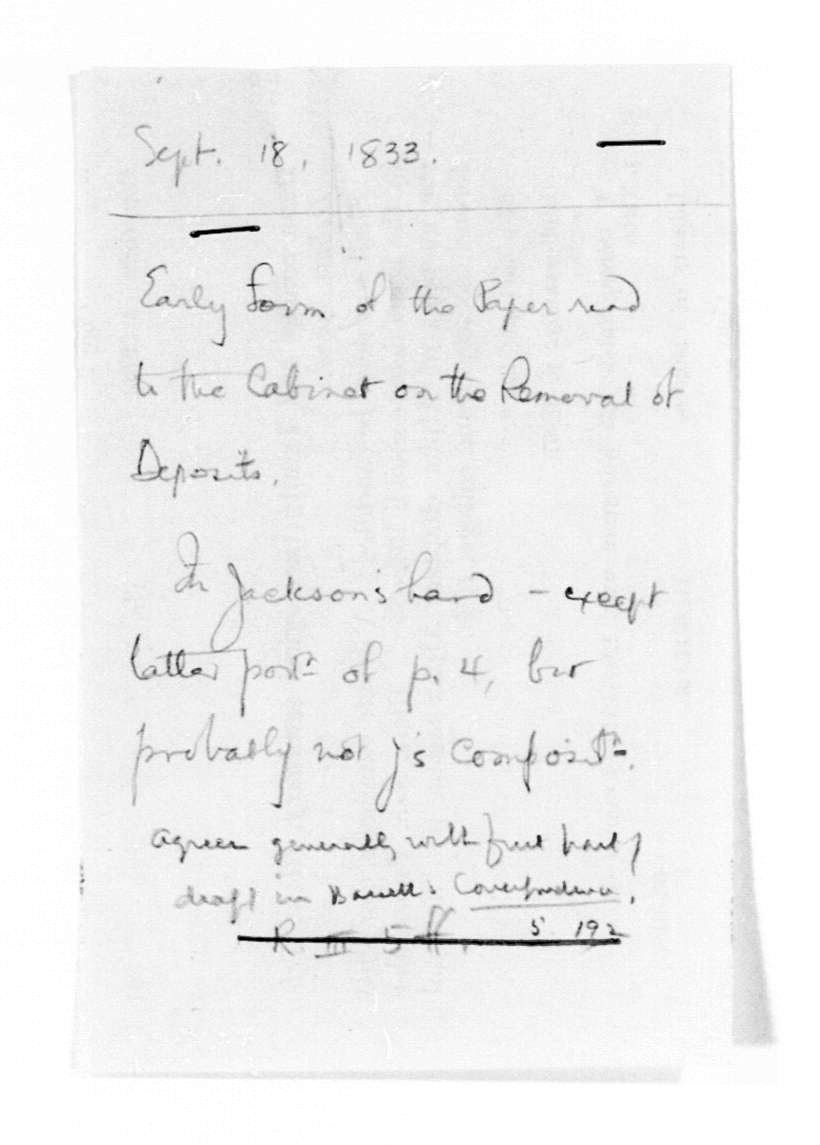 Sept. 18, 1833.
Early form of the Paper read
to the Cabinet on the Removal of
Deposits.
In Jackson's hand - except
latter portn of p. 4, but
probably not J's compositn.
agrees generally with first part of
draft in Bassett: Correspondence,
5 192
R. III 5 ff.